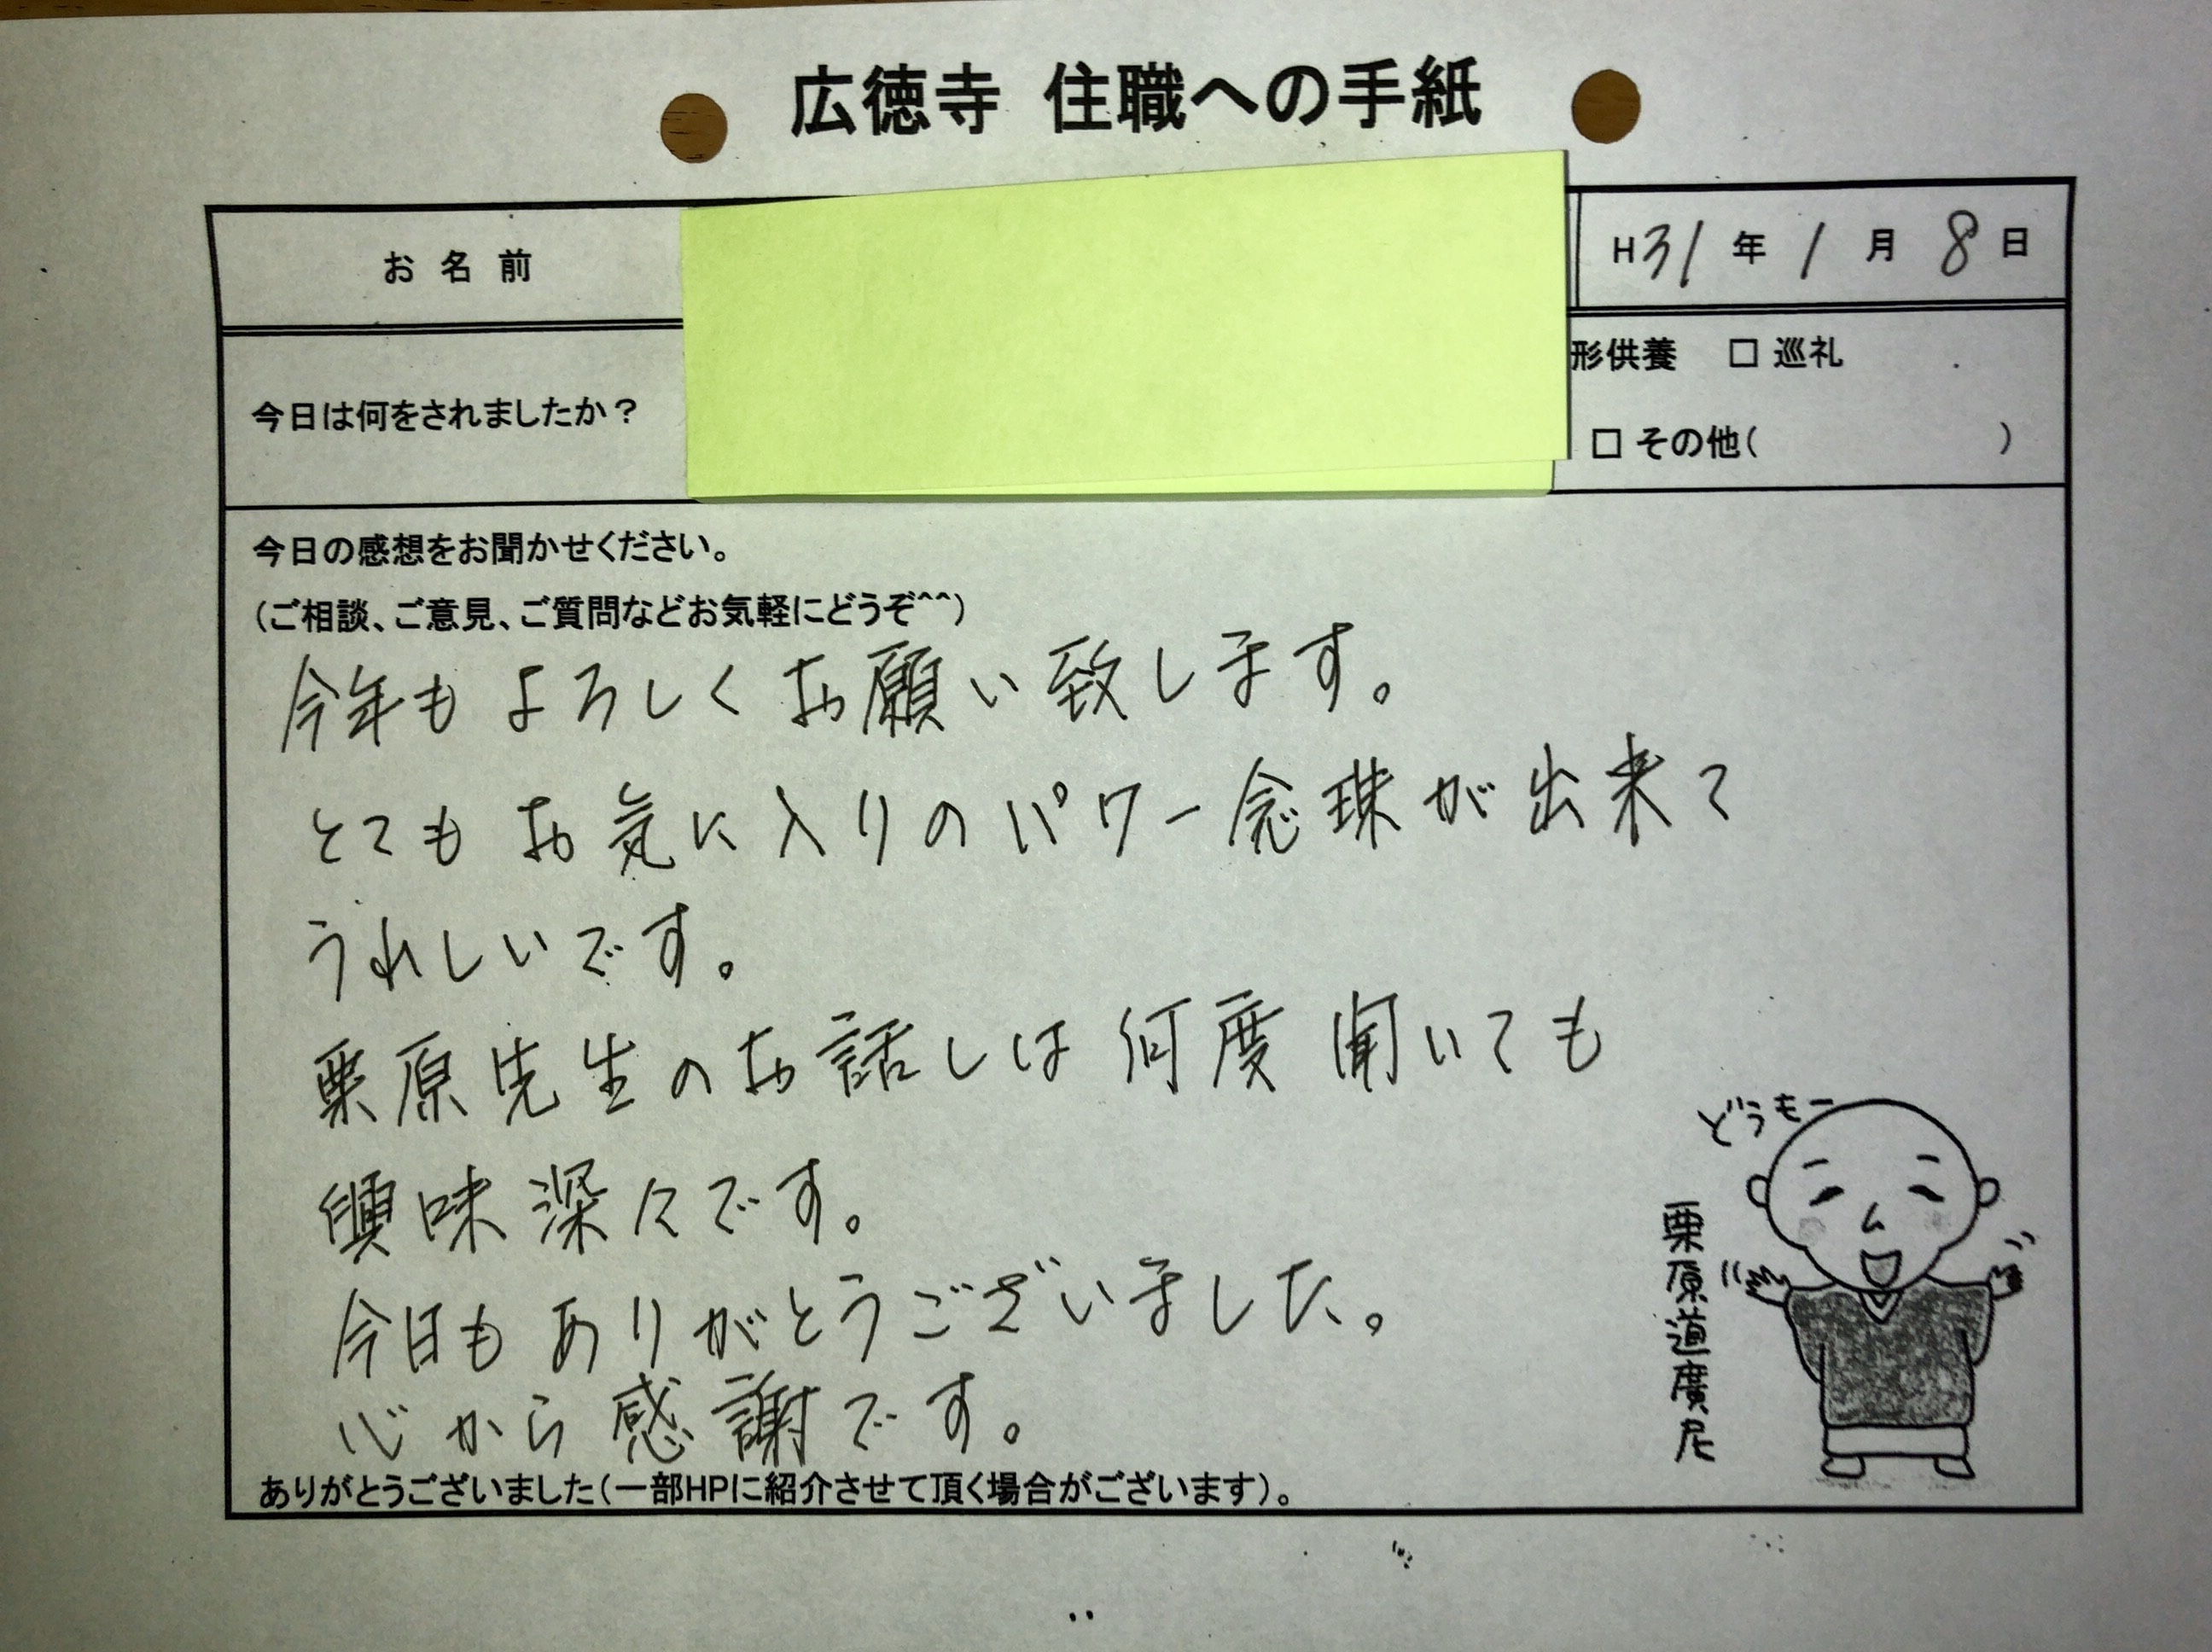 広徳寺 住職への手紙
お名前
H31年1月8日
今日は何をされましたか？
形供養 □ 巡礼
□ その他（ ）
今日の感想をお聞かせください。
（ご相談、ご意見、ご質問などお気軽にどうぞ^^）
今年もよろしくお願い致します。
とてもお気に入りのパワー念珠が出来て
うれしいです。
栗原先生のお話しは何度聞いても
興味深々です。
今日もありがとうございました。
心から感謝です。
どうもー
栗原道廣尼
ありがとうございました（一部HPに紹介させて頂く場合がございます）。